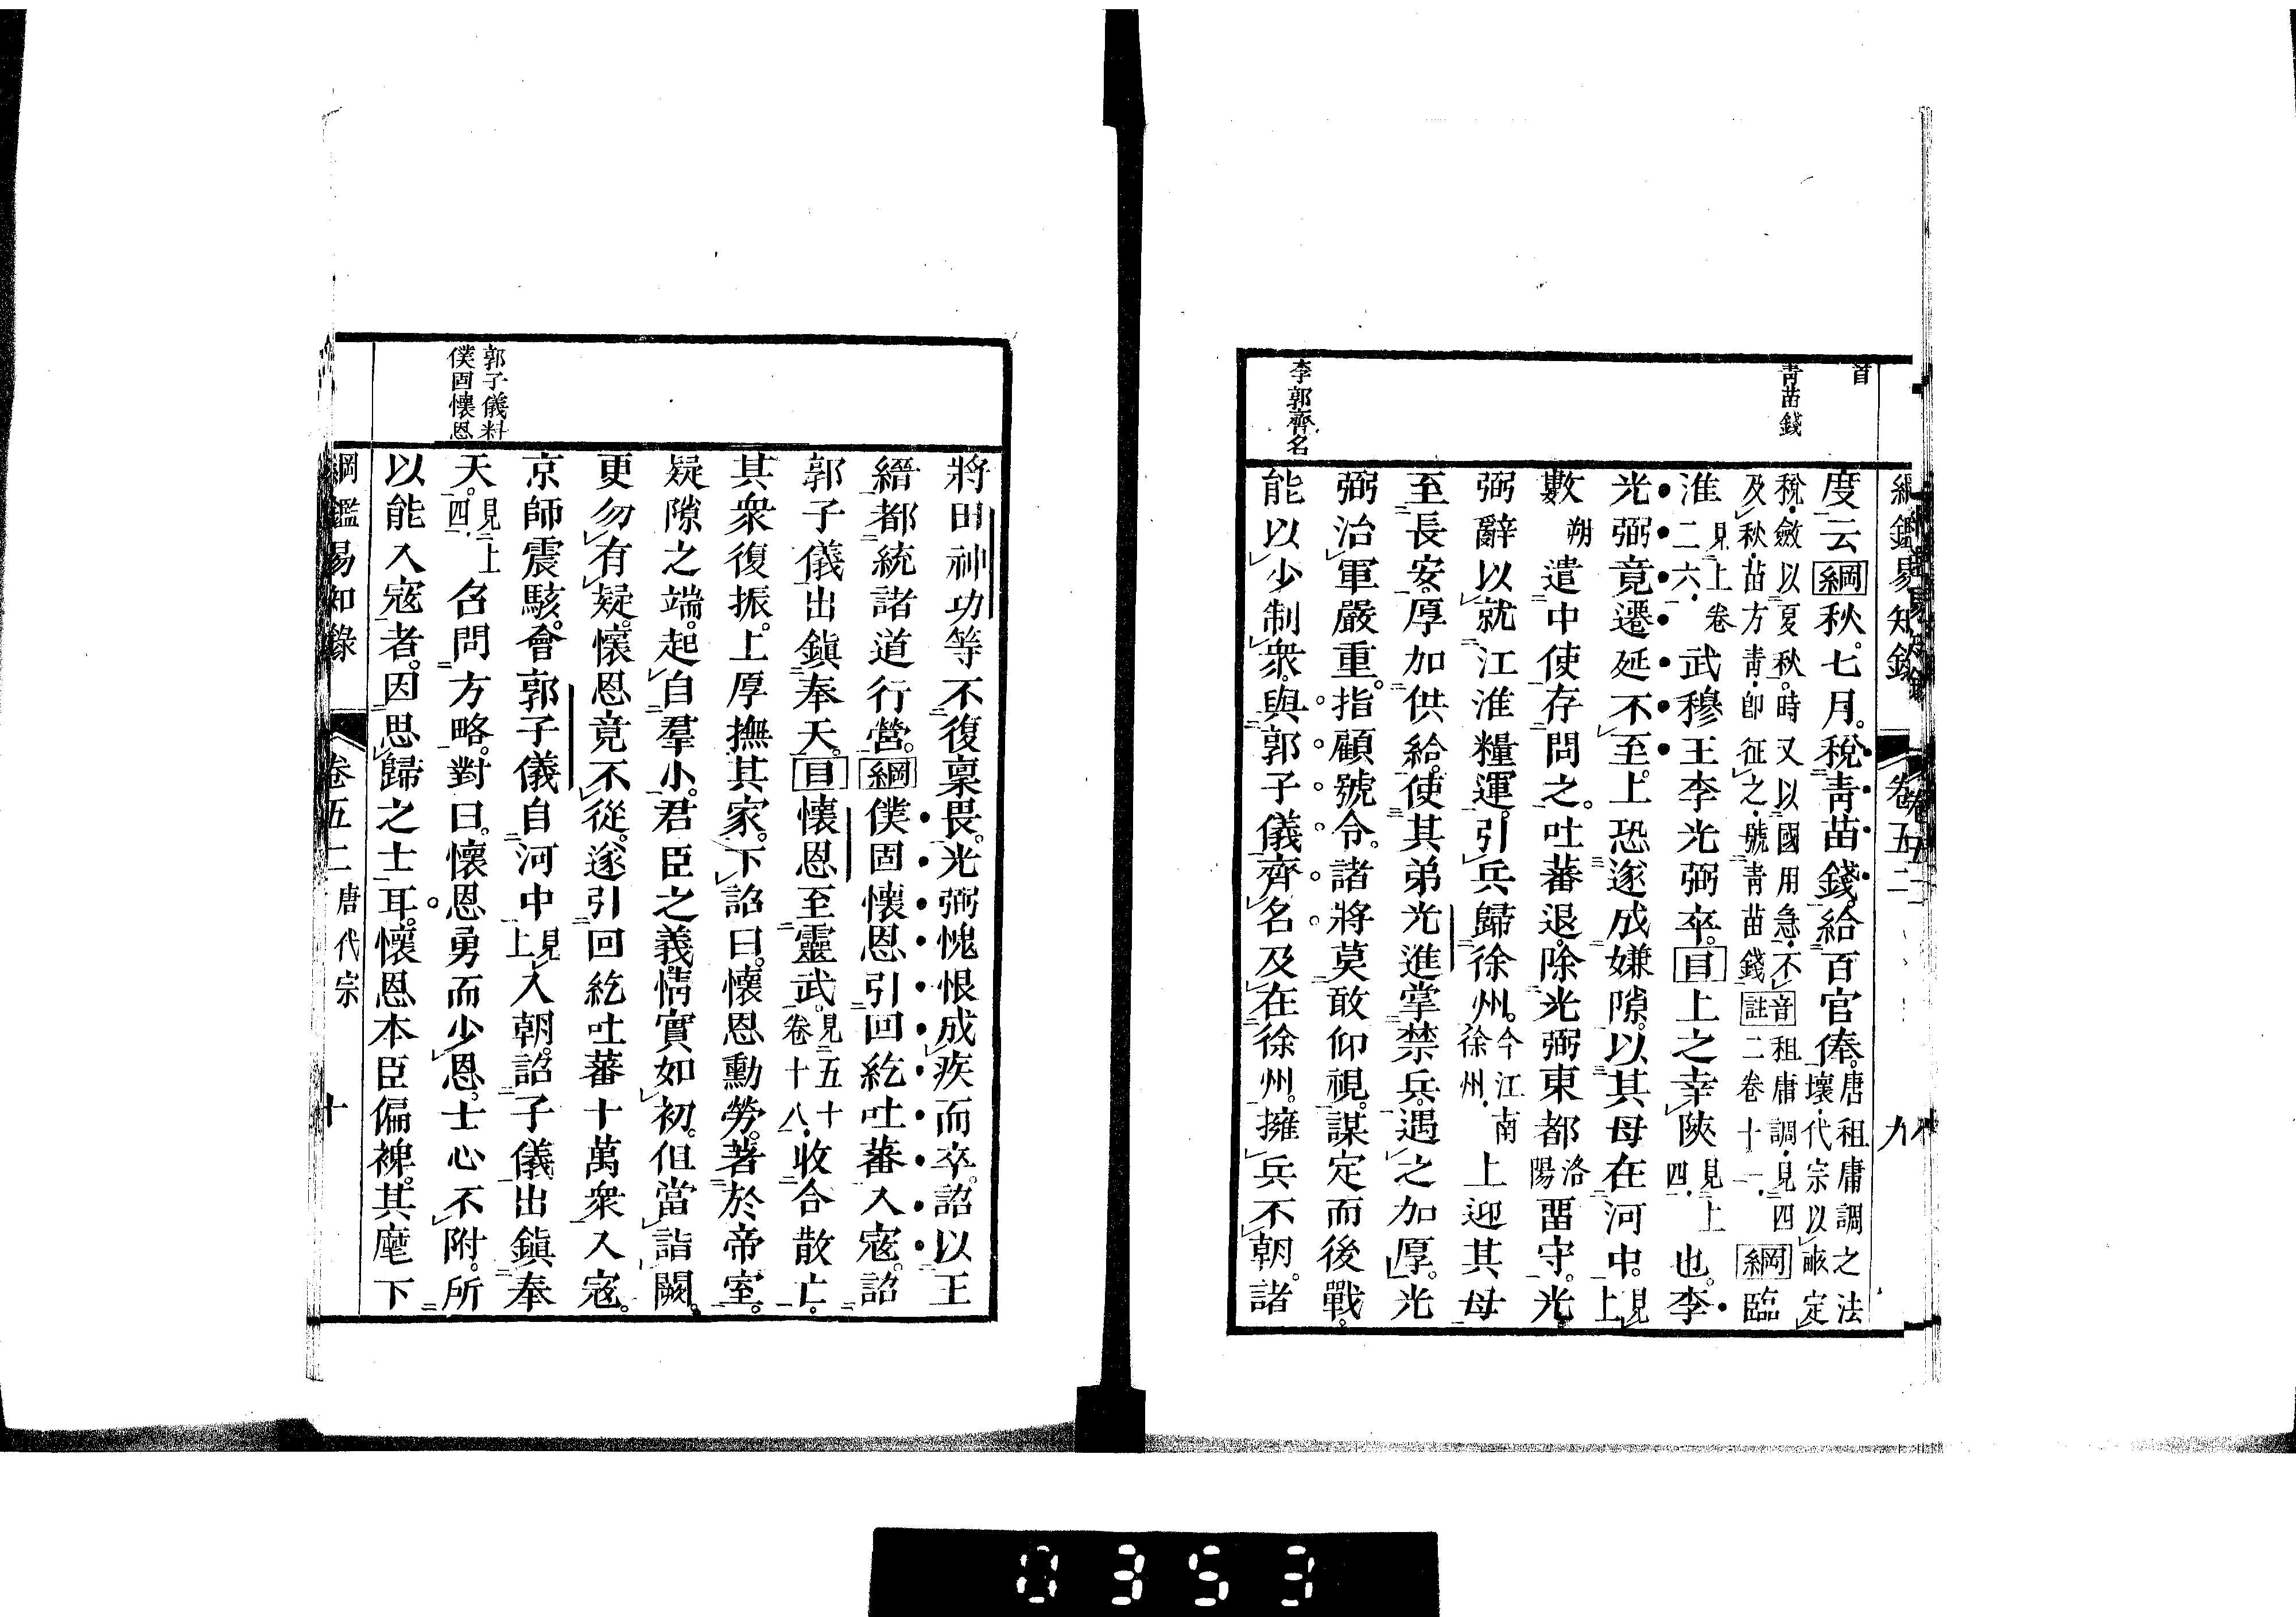 綱鑑易知錄 卷五二 九
首
青苗錢
李郭齊名
度云綱秋七月稅青苗錢給百官俸唐租庸調之法壞代宗以畝定
稅斂以夏秋時又以國用急不及秋苗方青卽征之號青苗錢音註租庸調見四二卷十一綱臨
淮見上卷二六武穆王李光弼卒目上之幸陝見上四也李
光弼竟遷延不至上恐遂成嫌隙以其母在河中見上
數朔遣中使存問之吐蕃退除光弼東都洛陽留守光
弼辭以就江淮糧運引兵歸徐州今江南徐州上迎其母
至長安厚加供給使其弟光進掌禁兵遇之加厚光
弼治軍嚴重指顧號令諸將莫敢仰視謀定而後戰
能以少制衆與郭子儀齊名及在徐州擁兵不朝諸
將田神功等不復稟畏光弼愧恨成疾而卒詔以王
縉都統諸道行營綱僕固懷恩引回紇吐蕃入寇詔
郭子儀出鎮奉天目懷恩至靈武見五十卷十八收合散亡
其衆復振上厚撫其家下詔曰懷恩勳勞著於帝室
疑隙之端起自羣小君臣之義情實如初但當詣闕
更勿有疑懷恩竟不從遂引回紇吐蕃十萬衆入寇
京師震駭會郭子儀自河中見上入朝詔子儀出鎮奉
天見上四召問方略對曰懷恩勇而少恩士心不附所
以能入寇者因思歸之士耳懷恩本臣偏裨其麾下
郭子儀料
僕固懷恩
綱鑑易知錄 卷五二 唐代宗 十
0353